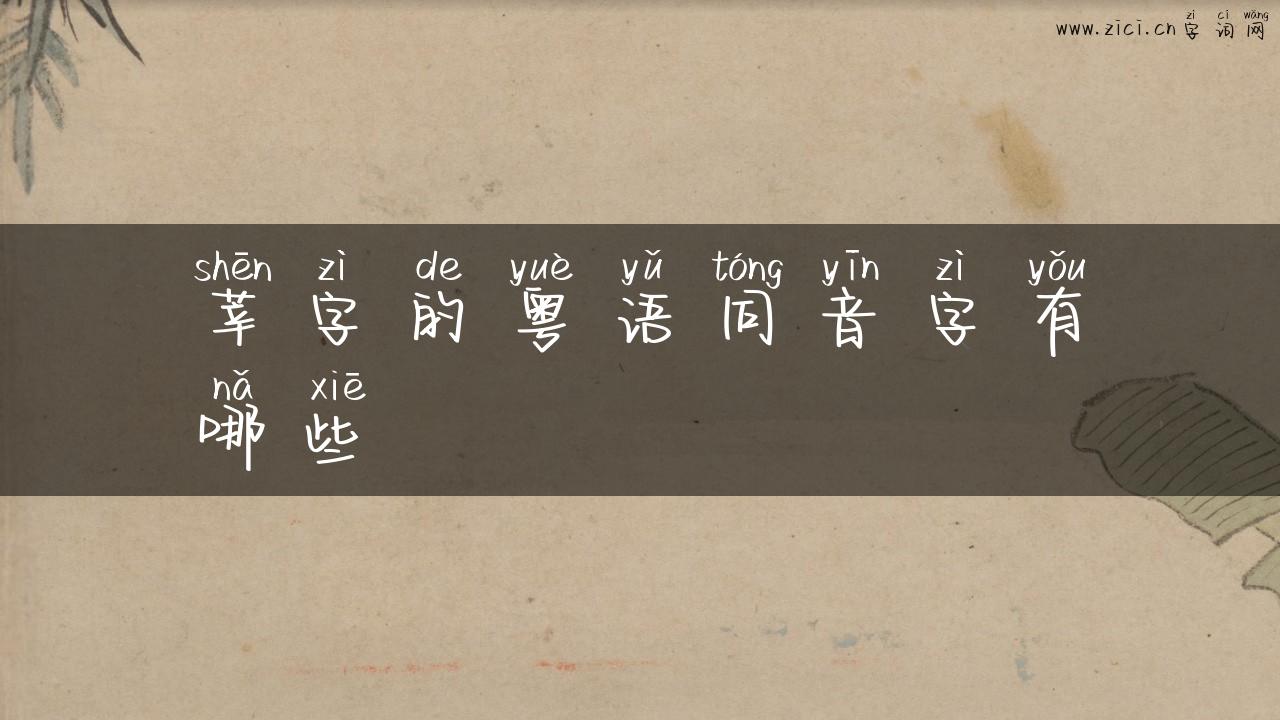 www.zici.cn zì cí wǎng 字词网
shēn zì de yuè yǔ tóng yīn zì yǒu
莘字的粤语同音字有
nǎ xiē
哪些